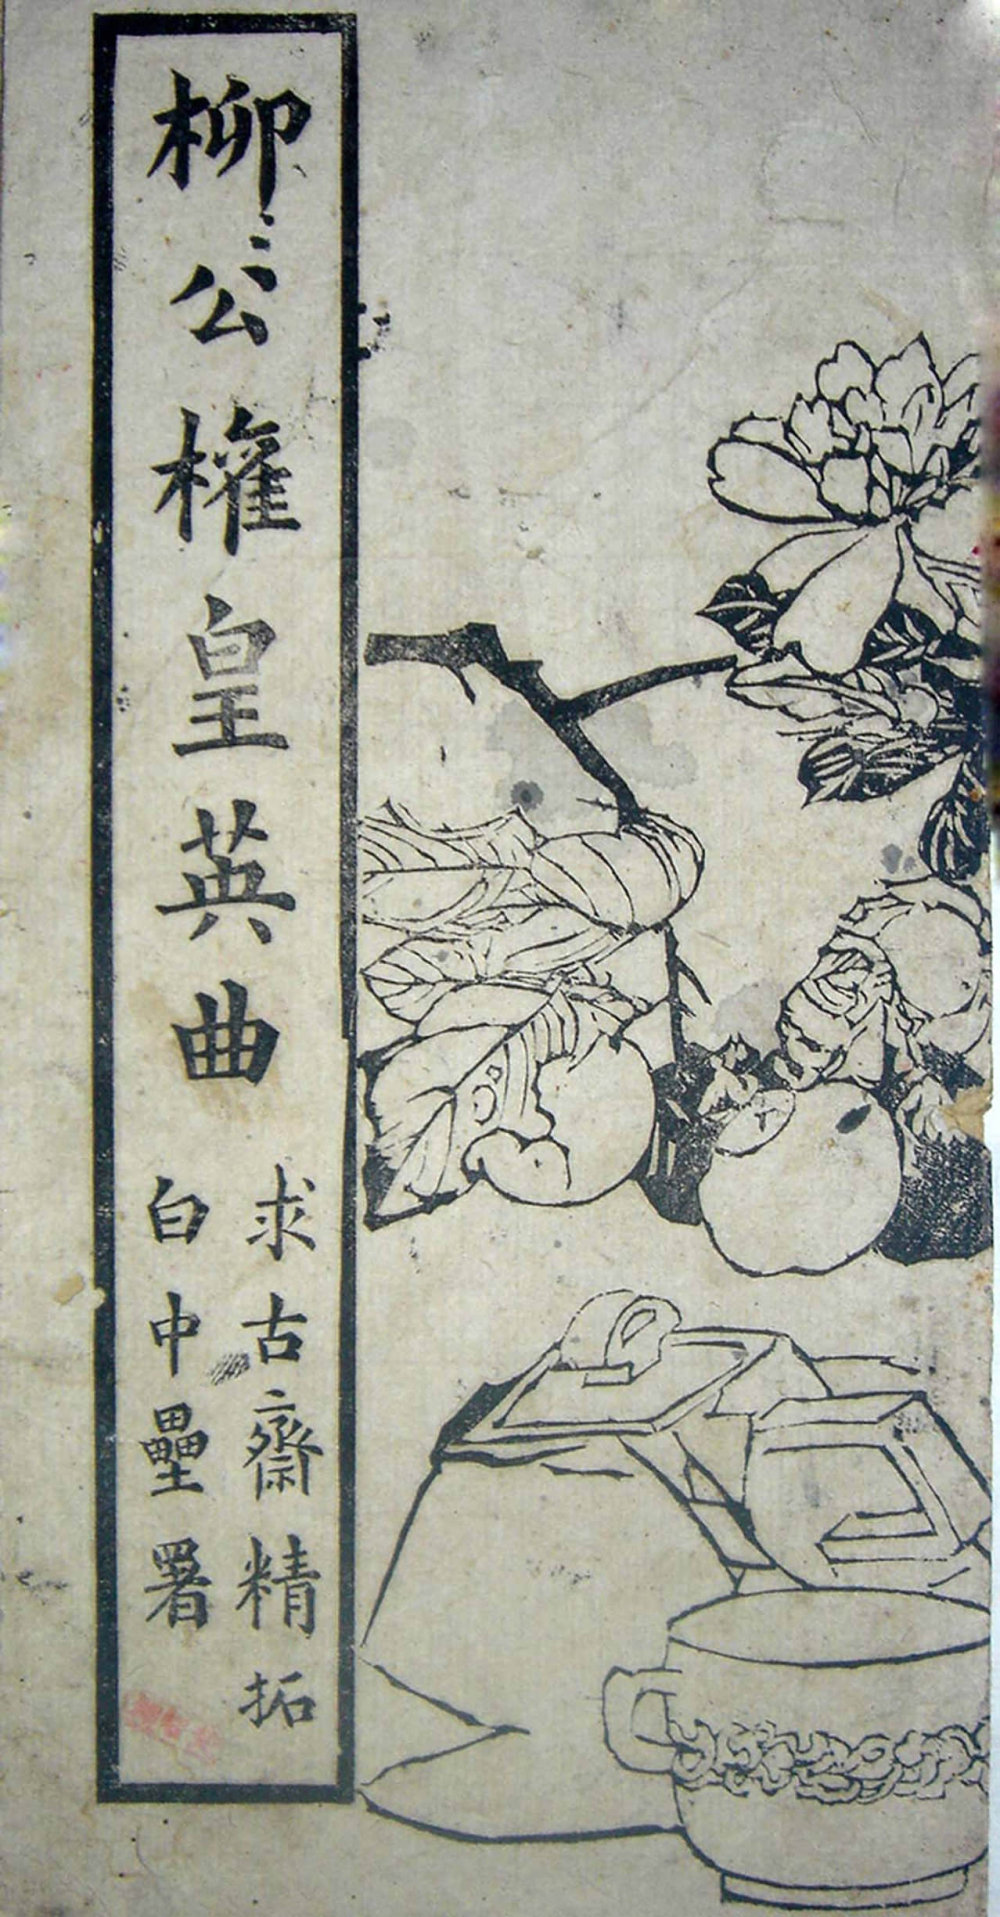 柳公權皇英曲
求古齋精拓
白中壘署